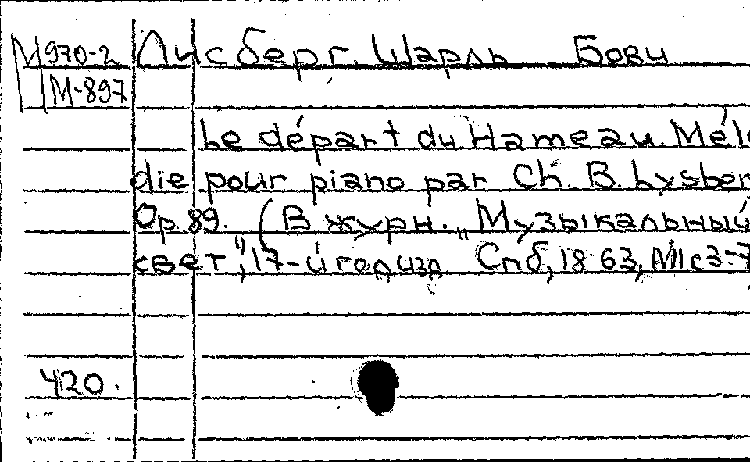 М970-2 Лисберг. Шарль Бови
М-897
Le départ du Hameau. Mélo
die pour piano par Ch. B. Lysber
Op. 89. (В журн. „Музыкальный
свет", 17-й год изд. Спб, 1863, №1 с3-7
420.